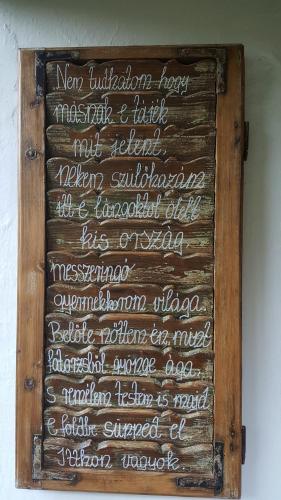 Nem tudhatom hogy
másnak e tájék
mit jelent,
nekem szülőhazám
itt e lángoktól ölelt
kis ország,
messzeringó
gyermekkorom világa.
Belőle nőttem én, mint
fatörzsből gyönge ága
s remélem testem is majd
e földbe süpped el.
Itthon vagyok.